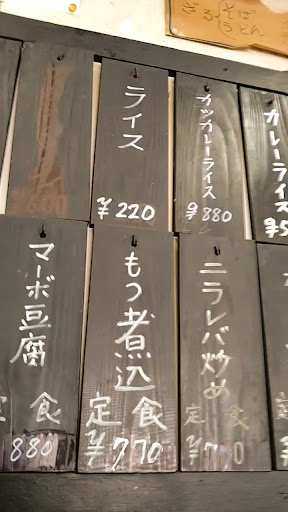 ざるそば
うどん
ライス
¥220
カツカレーライス
¥880
カレーライス
¥5
マーボ豆腐
定食
880
もつ煮込
定食
¥770
ニラレバ炒め
定食